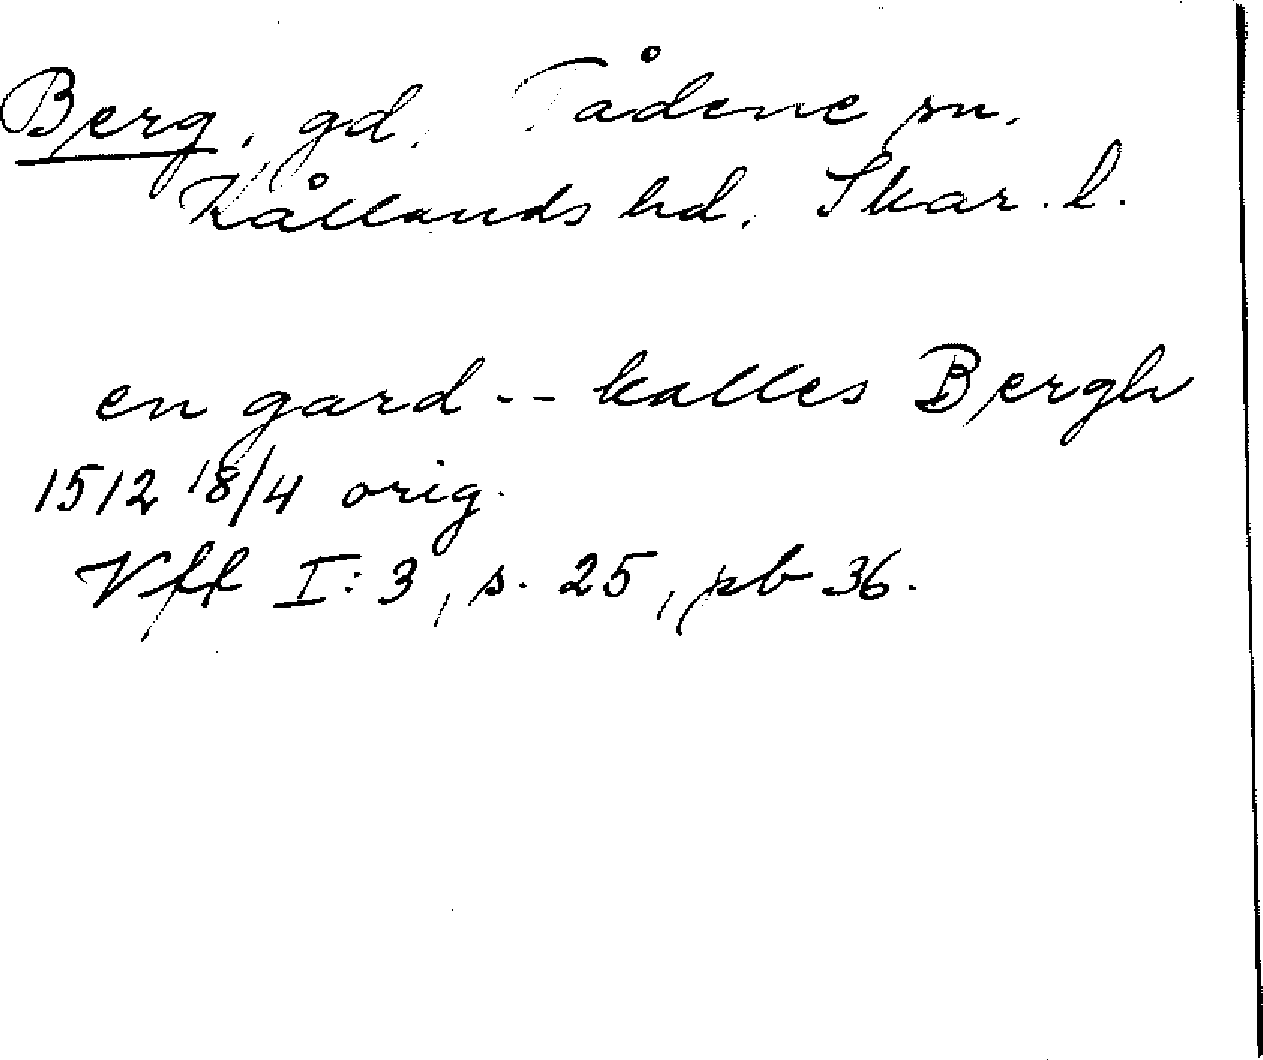 Berg, gd, Tådene sn.
Kållands hd, Skar. l.
en gard -- kalles Bergh
1512 18/4 orig.
Vff I:3, s. 25, pb 36.